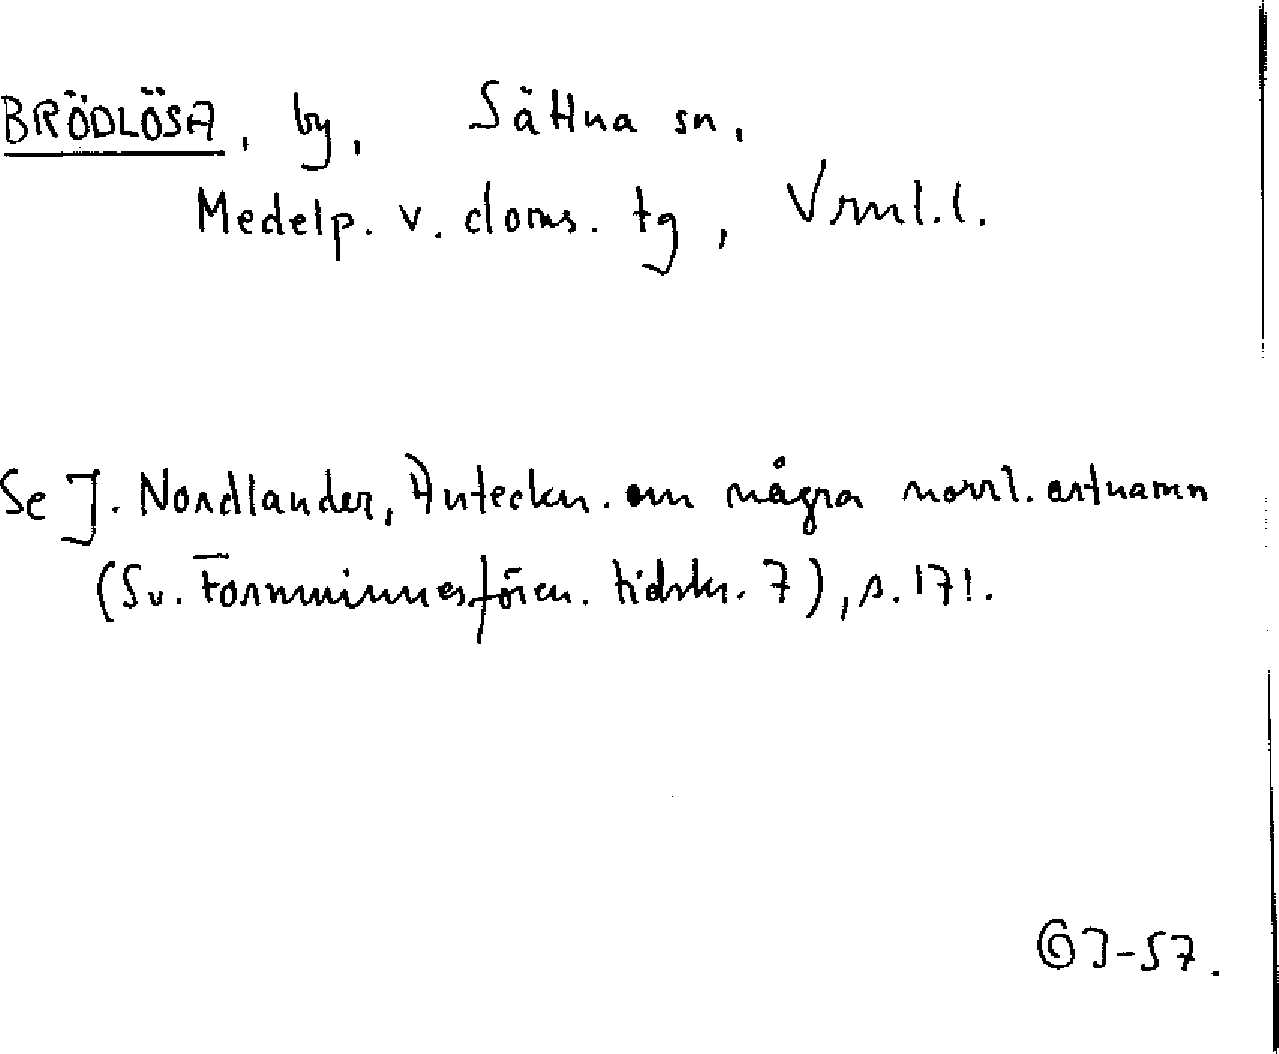 BRÖDLÖSA, by, Sättna sn,
Medelp. v. doms. tg, Vrnl. l.
Se J. Nordlander, Anteckn. om några norrl. ortnamn
(Sv. Fornminnesfören. tidskr. 7), s. 171.
J-57.